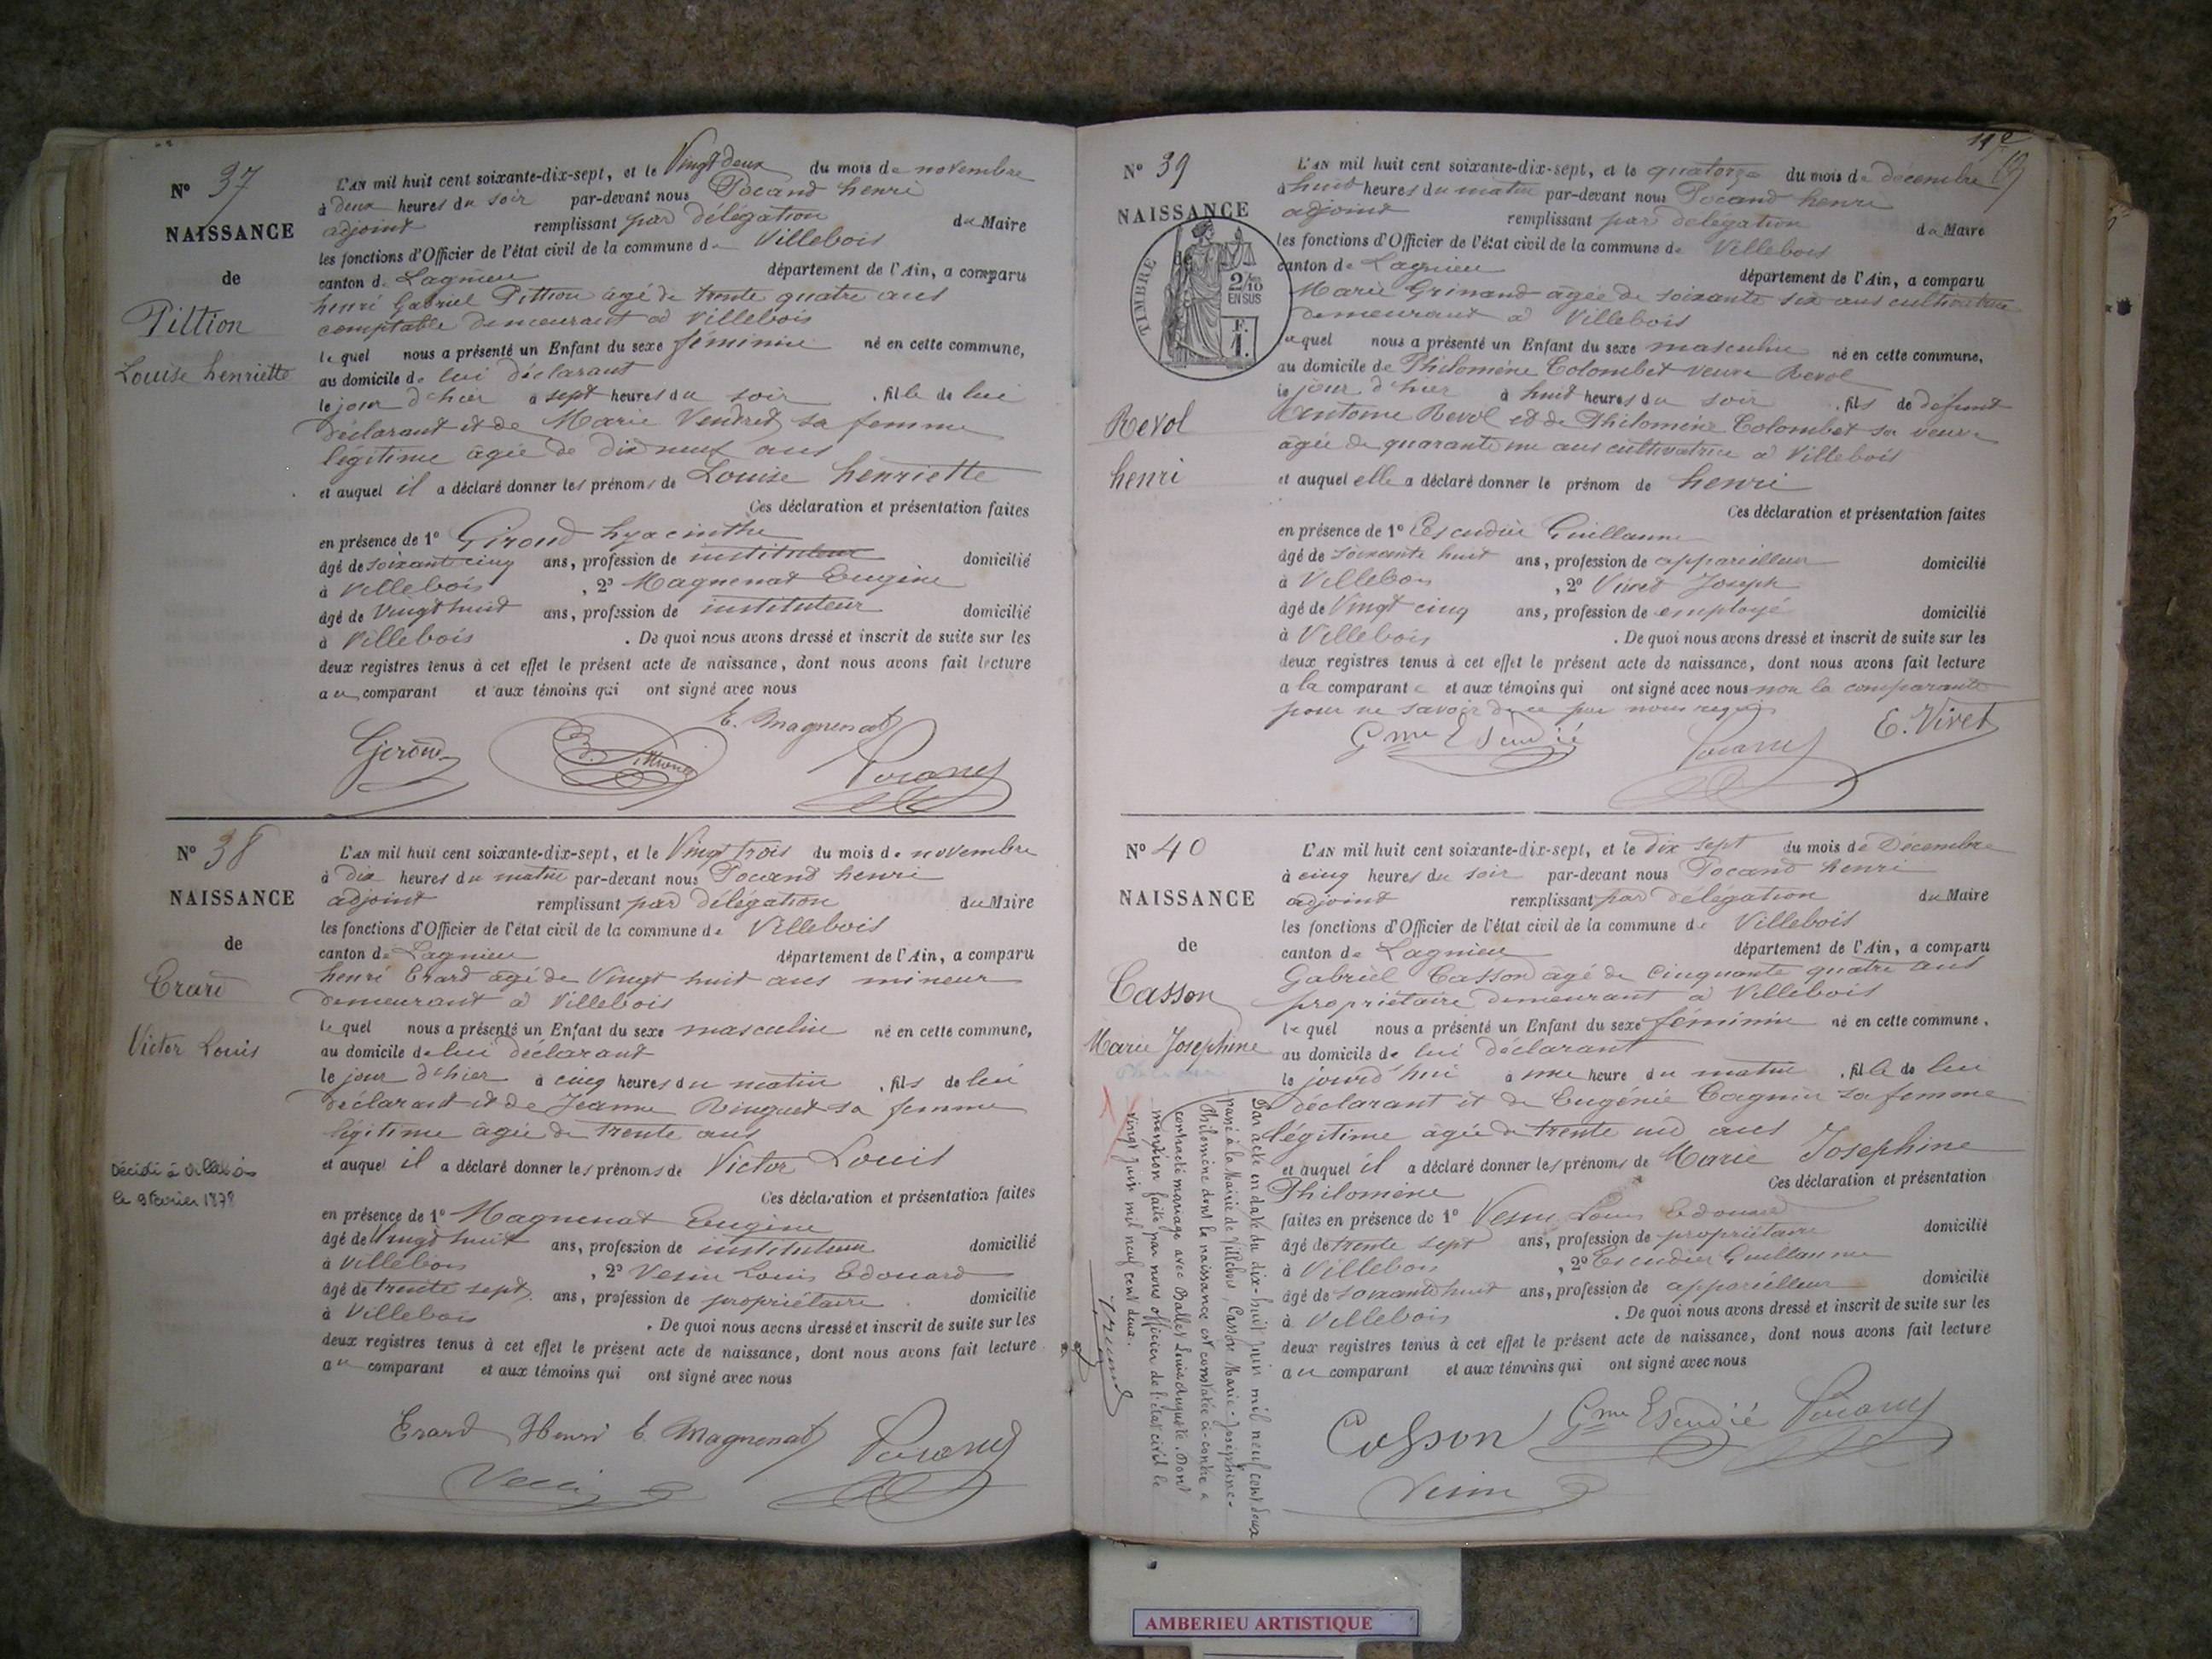 N° 37
NAISSANCE
de
Pittion
Louise henriette
L'AN mil huit cent soixante-dix-sept, et le Vingt deux du mois de novembre
à deux heures du soir par-devant nous Pocand henri
adjoint remplissant par délégation du Maire
les fonctions d'Officier de l'état civil de la commune de Villebois
canton de Lagnieu département de l'Ain, a comparu
henri Gabriel Pittion âgé de trente quatre ans
comptable demeurant à Villebois
lequel nous a présenté un Enfant du sexe féminin né en cette commune,
au domicile de lui déclarant
le jour d'hier à sept heures du soir , fille de lui
déclarant et de Marie Vendret sa femme
légitime âgée de dix neuf ans
et auquel il a déclaré donner les prénoms de Louise henriette
Ces déclaration et présentation faites
en présence de 1° Giroud hyacinthe
âgé de soixante cinq ans, profession de instituteur domicilié
à Villebois , 2° Magnenat Eugène
âgé de Vingt huit ans, profession de instituteur domicilié
à Villebois . De quoi nous avons dressé et inscrit de suite sur les
deux registres tenus à cet effet le présent acte de naissance, dont nous avons fait lecture
au comparant et aux témoins qui ont signé avec nous
E. Magnenat
Giroud Pittion Pocand
N° 38
NAISSANCE
de
Erard
Victor Louis
Décédé à Villebois
le 9 février 1878
L'AN mil huit cent soixante-dix-sept, et le Vingt trois du mois de novembre
à dix heures du matin par-devant nous Pocand henri
adjoint remplissant par délégation du Maire
les fonctions d'Officier de l'état civil de la commune de Villebois
canton de Lagnieu département de l'Ain, a comparu
henri Erard âgé de Vingt huit ans mineur
demeurant à Villebois
lequel nous a présenté un Enfant du sexe masculin né en cette commune,
au domicile de lui déclarant
le jour d'hier à cinq heures du matin , fils de lui
déclarant et de Jeanne Ringuet sa femme
légitime âgée de trente ans
et auquel il a déclaré donner les prénoms de Victor Louis
Ces déclaration et présentation faites
en présence de 1° Magnenat Eugène
âgé de Vingt huit ans, profession de instituteur domicilié
à Villebois , 2° Vesin Louis Edouard
âgé de trente sept ans, profession de propriétaire domicilié
à Villebois . De quoi nous avons dressé et inscrit de suite sur les
deux registres tenus à cet effet le présent acte de naissance, dont nous avons fait lecture
au comparant et aux témoins qui ont signé avec nous
Erard Henri E. Magnenat Pocand
Vesin
19
N° 39
NAISSANCE
de
TIMBRE
2/10
EN SUS
F.
1.
Revol
henri
L'AN mil huit cent soixante-dix-sept, et le quatorze du mois de décembre
à huit heures du matin par-devant nous Pocand henri
adjoint remplissant par délégation du Maire
les fonctions d'Officier de l'état civil de la commune de Villebois
canton de Lagnieu département de l'Ain, a comparu
Marie Grinand âgée de soixante six ans cultivatrice
demeurant à Villebois
laquel nous a présenté un Enfant du sexe masculin né en cette commune,
au domicile de Philomène Colombet veuve Revol
le jour d'hier à huit heures du soir , fils de défunt
Antoine Revol et de Philomène Colombet sa veuve
âgée de quarante un ans cultivatrice à Villebois
et auquel elle a déclaré donner le prénom de henri
Ces déclaration et présentation faites
en présence de 1° Escudier Guillaume
âgé de soixante huit ans, profession de appareilleur domicilié
à Villebois , 2° Vivet Joseph
âgé de Vingt cinq ans, profession de employé domicilié
à Villebois . De quoi nous avons dressé et inscrit de suite sur les
deux registres tenus à cet effet le présent acte de naissance, dont nous avons fait lecture
a la comparante et aux témoins qui ont signé avec nous non la comparante
pour ne savoir de ce par nous requis
Gme Escudié Pocand E. Vivet
N° 40
NAISSANCE
de
Casson
Marie Josephine
L'AN mil huit cent soixante-dix-sept, et le dix sept du mois de Décembre
à cinq heures du soir par-devant nous Pocand henri
adjoint remplissant par délégation du Maire
les fonctions d'Officier de l'état civil de la commune de Villebois
canton de Lagnieu département de l'Ain, a comparu
Gabriel Casson âgé de cinquante quatre ans
propriétaire demeurant à Villebois
lequel nous a présenté un Enfant du sexe féminin né en cette commune,
au domicile de lui déclarant
le jourd'hui à une heure du matin , fille de lui
déclarant et de Eugénie Cagnin sa femme
légitime âgée de trente un ans
et auquel il a déclaré donner les prénoms de Marie Josephine
Philomène Ces déclaration et présentation
faites en présence de 1° Vesin Louis Edouard
âgé de trente sept ans, profession de propriétaire domicilié
à Villebois , 2° Escudier Guillaume
âgé de soixante huit ans, profession de appareilleur domicilié
à Villebois . De quoi nous avons dressé et inscrit de suite sur les
deux registres tenus à cet effet le présent acte de naissance, dont nous avons fait lecture
au comparant et aux témoins qui ont signé avec nous
Casson Gme Escudié Pocand
Vesin
Par acte en date du dix-huit juin mil neuf cent deux
passé à la Mairie de Villebois, Casson Marie-Joséphine-
Philomène dont la naissance est constatée ci-contre a
contracté mariage avec Ballet Louis Auguste. Dont
mention faite par nous officier de l'état civil le
vingt juin mil neuf cent deux.
AMBERIEU ARTISTIQUE